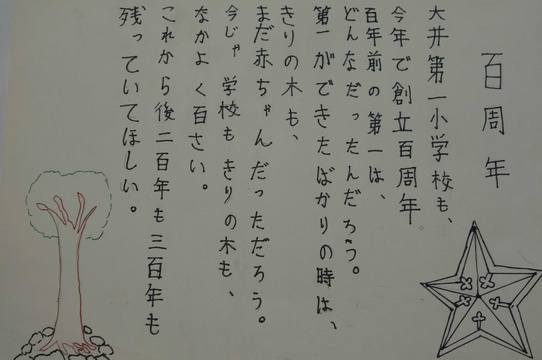 百周年
大井第一小学校も、
今年で創立百周年
百年前の第一は、
どんなだったんだろう。
第一ができたばかりの時は、
きりの木も、
まだ赤ちゃんだっただろう。
今じゃ学校もきりの木も、
なかよく百さい。
これから後二百年も三百年も
残っていてほしい。